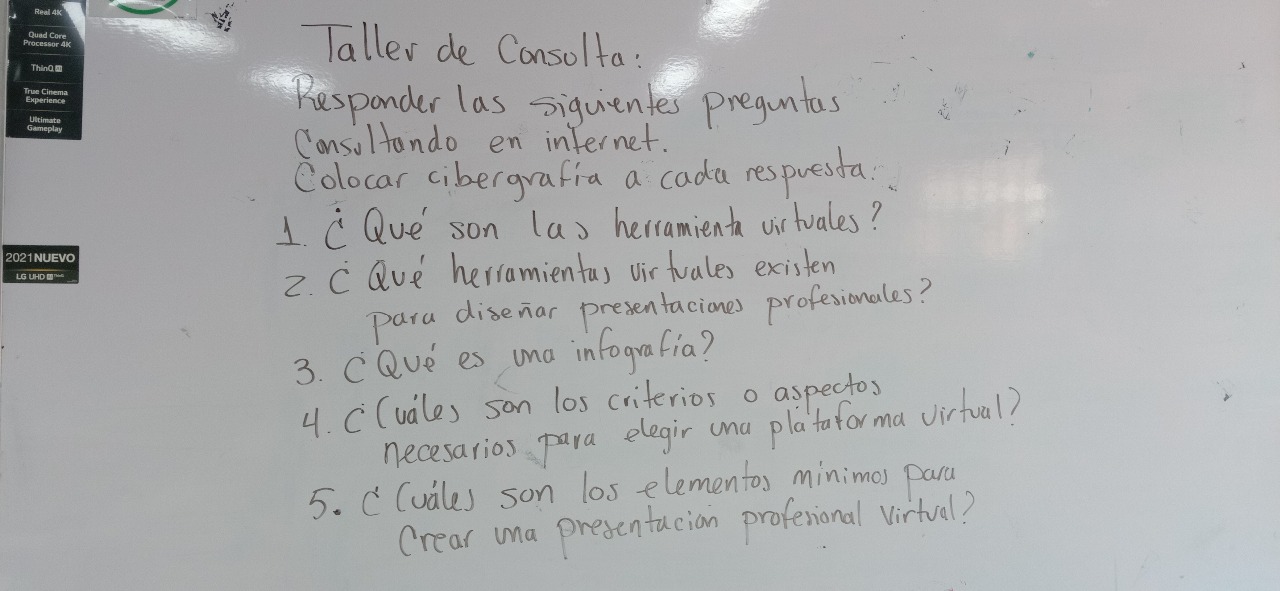 Real 4K
Quad Core
Processor 4K
ThinQ AI
True Cinema
Experience
Ultimate
Gameplay
2021 NUEVO
LG UHD AI ThinQ
Taller de Consulta:
Responder las siguientes preguntas
Consultando en internet.
Colocar cibergrafía a cada respuesta.
1. ¿Qué son las herramienta virtuales?
2. ¿Qué herramientas virtuales existen
para diseñar presentaciones profesionales?
3. ¿Qué es una infografía?
4. ¿Cuáles son los criterios o aspectos
necesarios para elegir una plataforma virtual?
5. ¿Cuáles son los elementos mínimos para
Crear una presentación profesional virtual?